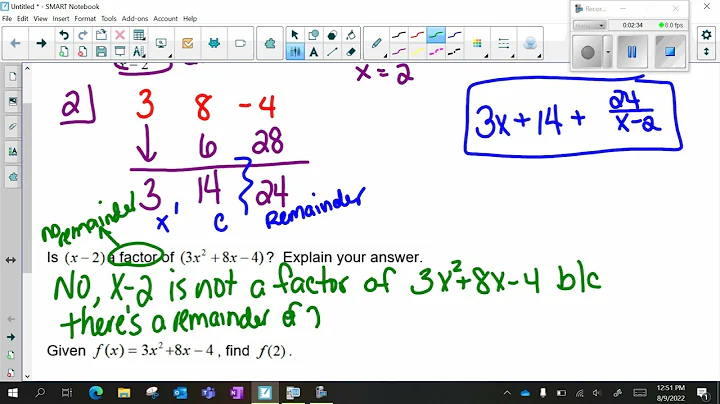 Untitled * - SMART Notebook
File Edit View Insert Format Tools Add-ons Account Help
Recor...
00:02:34 8.0 fps
x - 2
x = 2
2 3 8 -4
6 28
3 14 24
3x + 14 + 24/(x-2)
no remainder
x' c Remainder
Is (x − 2) a factor of (3x² + 8x − 4)? Explain your answer.
No, x-2 is not a factor of 3x²+8x-4 b/c
there's a remainder of
Given f(x) = 3x² + 8x − 4, find f(2).
12:51 PM
8/9/2022